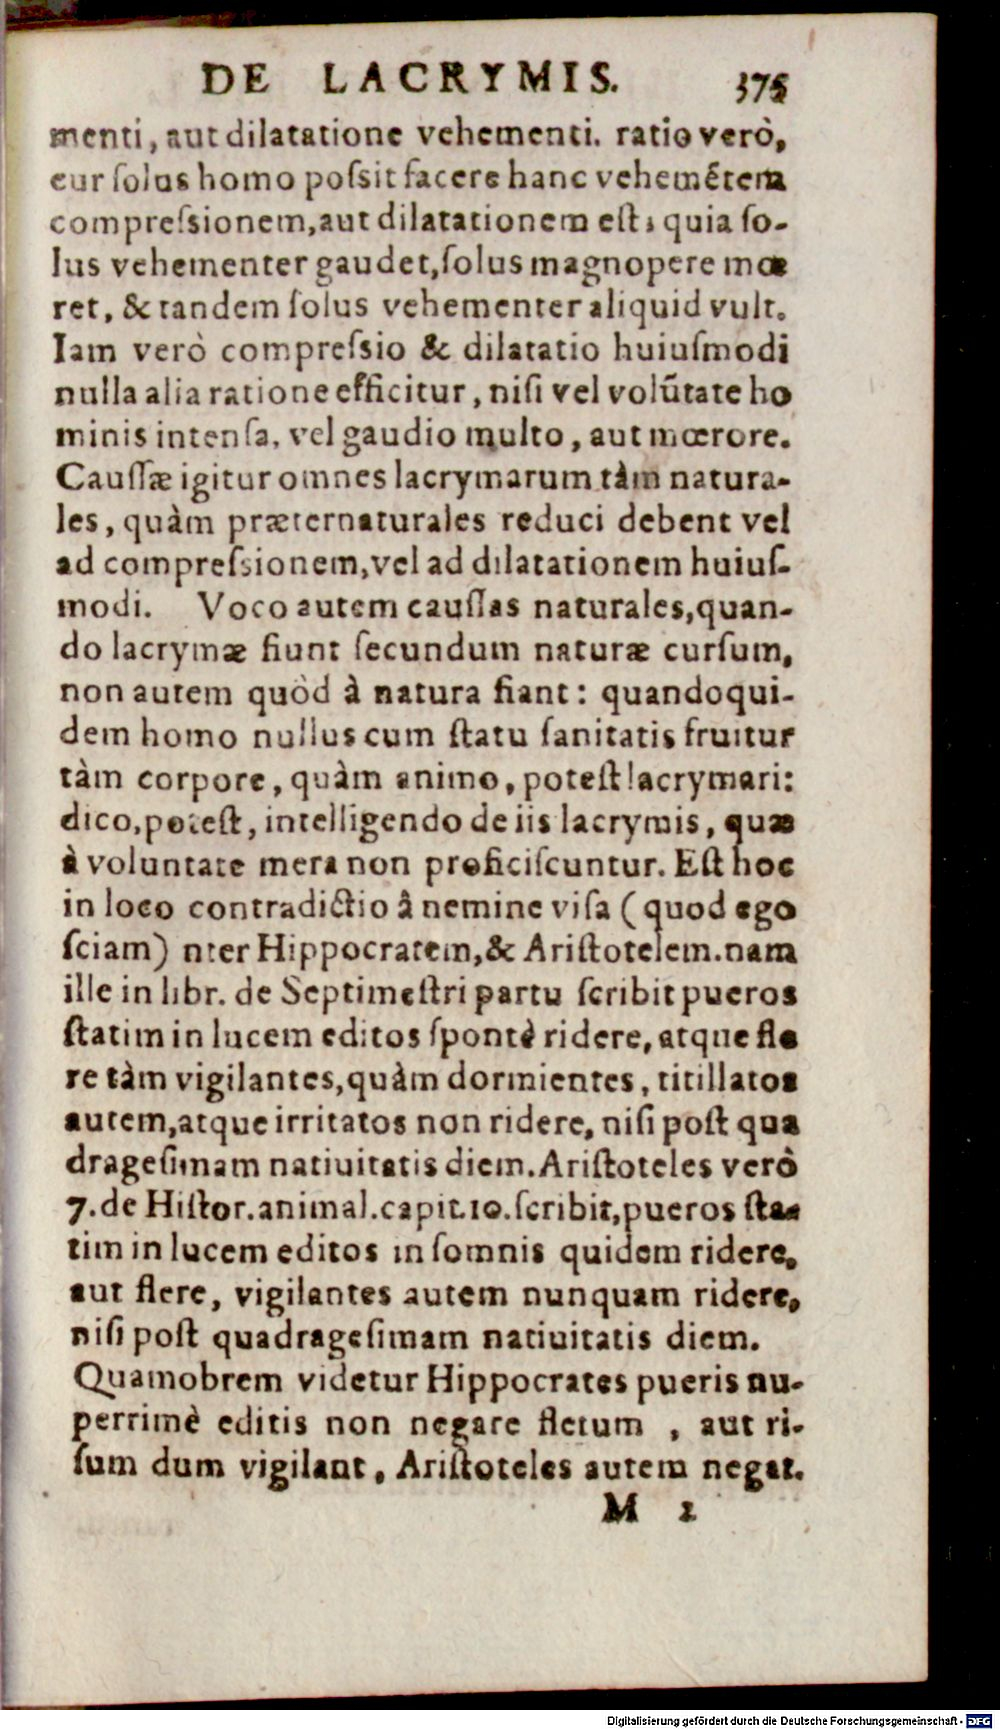 DE LACRYMIS. 375
menti, aut dilatatione vehementi. ratio verò,
cur ſolus homo poſsit facere hanc vehemẽtem
compreſsionem,aut dilatationem eſt; quia ſo-
lus vehementer gaudet,ſolus magnopere mœ
ret, & tandem ſolus vehementer aliquid vult.
Iam verò compreſsio & dilatatio huiuſmodi
nulla alia ratione efficitur, niſi vel volũtate ho
minis intenſa, vel gaudio multo, aut mœrore.
Cauſſæ igitur omnes lacrymarum tàm natura-
les, quàm præternaturales reduci debent vel
ad compreſsionem,vel ad dilatationem huiuſ-
modi. Voco autem cauſſas naturales,quan-
do lacrymæ fiunt ſecundum naturæ curſum,
non autem quòd à natura fiant: quandoqui-
dem homo nullus cum ſtatu ſanitatis fruitur
tàm corpore, quàm animo, poteſt lacrymari:
dico,poteſt, intelligendo de iis lacrymis, quæ
à voluntate mera non proficiſcuntur. Eſt hoc
in loco contradictio â nemine viſa (quod ego
ſciam) nter Hippocratem,& Ariſtotelem.nam
ille in libr. de Septimeſtri partu ſcribit pueros
ſtatim in lucem editos ſpontè ridere, atque fle
re tàm vigilantes,quàm dormientes, titillatos
autem,atque irritatos non ridere, niſi poſt qua
drageſimam natiuitatis diem. Ariſtoteles verò
7.de Hiſtor.animal.capit.10.ſcribit,pueros ſta-
tim in lucem editos in ſomnis quidem ridere,
aut flere, vigilantes autem nunquam ridere,
niſi poſt quadrageſimam natiuitatis diem.
Quamobrem videtur Hippocrates pueris nu-
perrimè editis non negare fletum , aut ri-
ſum dum vigilant, Ariſtoteles autem negat.
M 2
Digitalisierung gefördert durch die Deutsche Forschungsgemeinschaft - DFG